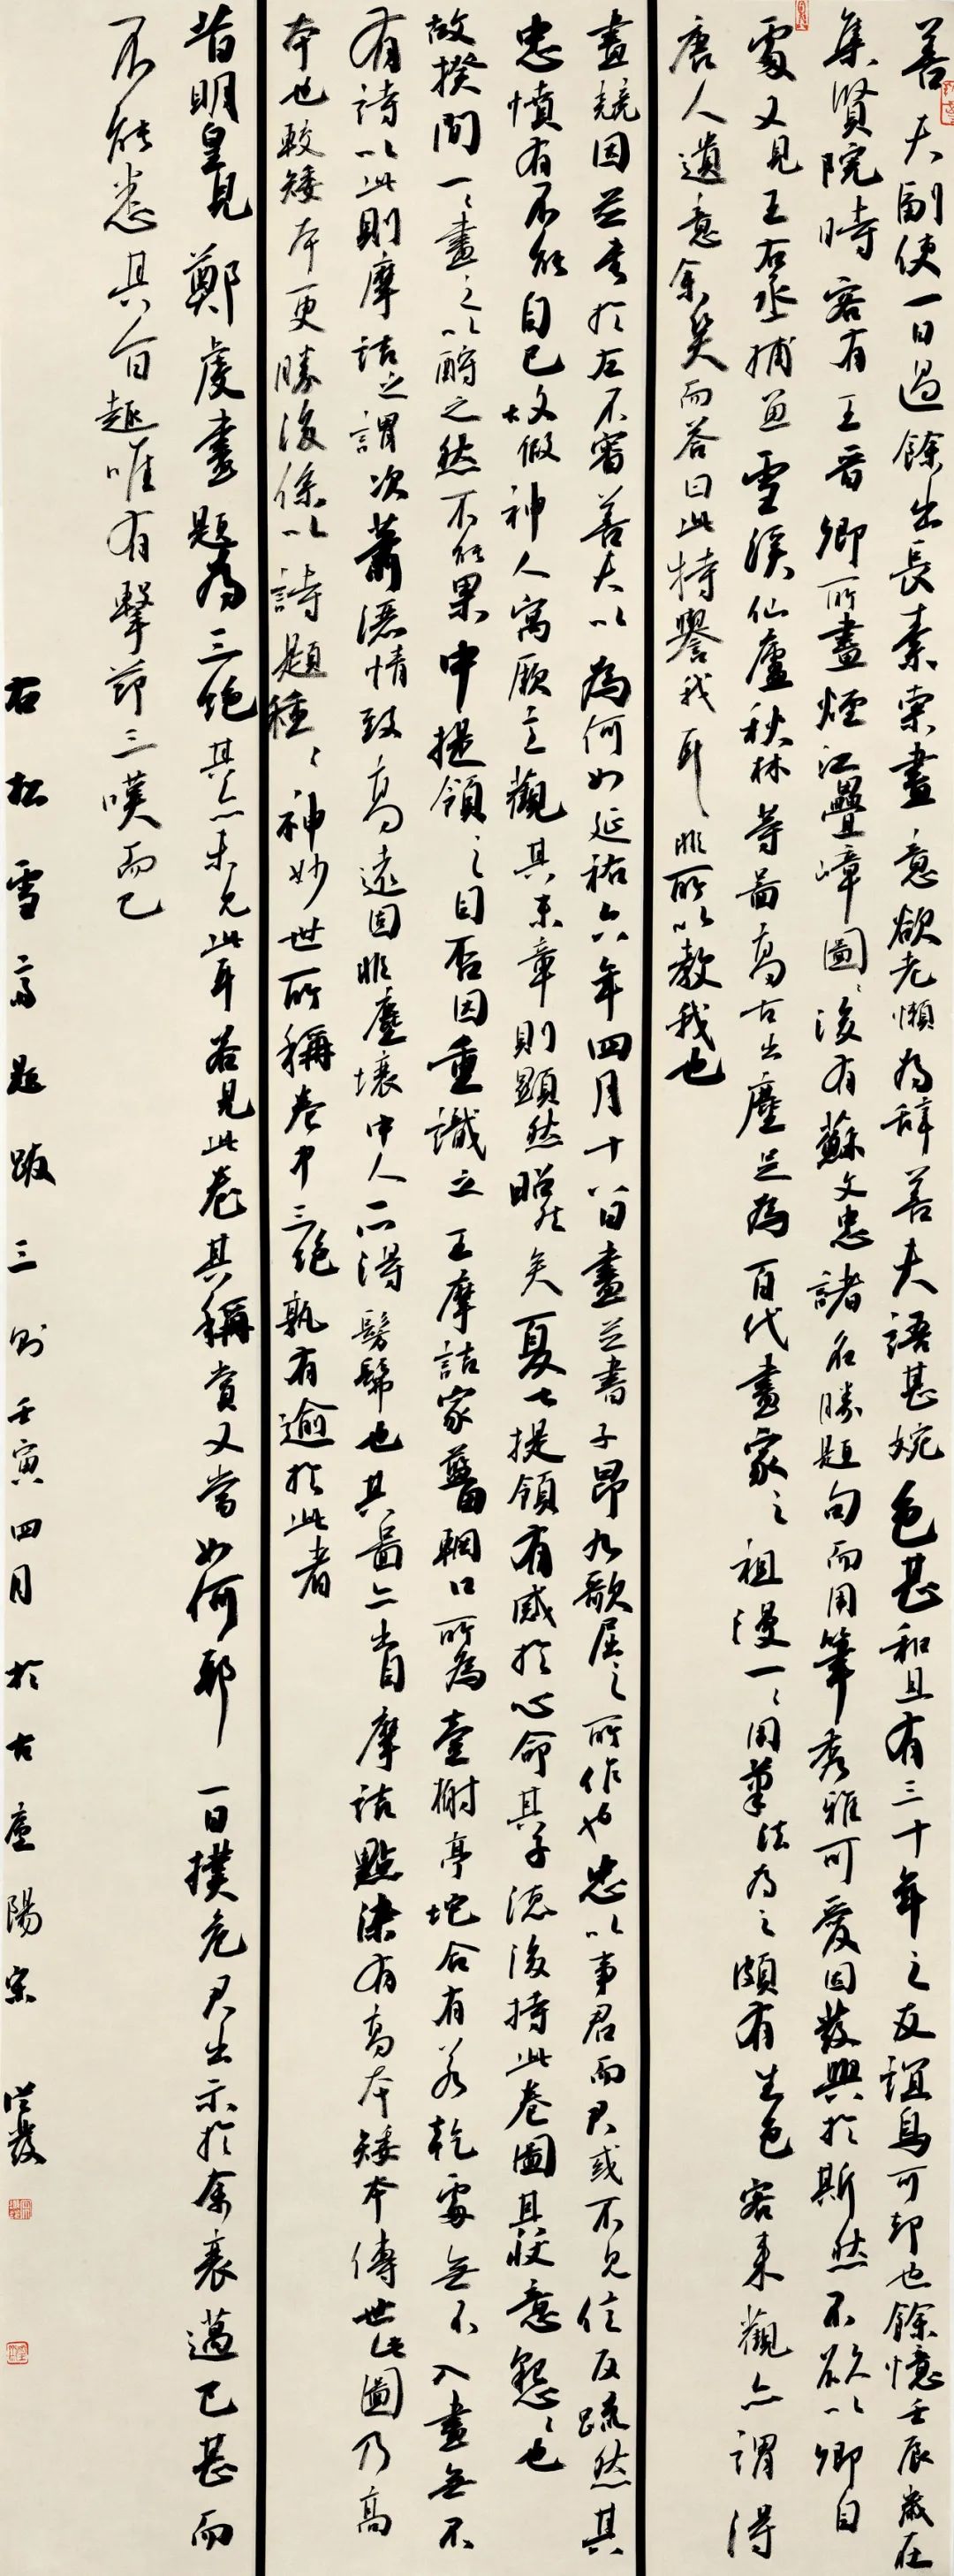 善夫副使一日過餘出長素索畫意欲老懶為辭善夫語甚婉色甚和且有三十年之友誼烏可却也餘憶壬辰歲在
集賢院時客有王晉卿所畫煙江疊嶂圖後有蘇文忠諸名勝題句而用筆秀雅可愛因發興於斯然不欲以卿自
處又見王右丞捕魚雪溪仙廬秋林等圖高古出塵足為百代畫家之祖漫一一用筆法為之頗有生色客來觀亦謂得
唐人遺意余笑而答曰此特譽我耳非所以教我也
畫競因並書於左不審善夫以為何如延祐六年四月十八日畫並書子昂九歌屈之所作也忠以事君而君或不見信反疏然其
忠憤有不能自已故假神人寓厥意觀其末章則顯然昭然矣夏七提領有感於心命其子德後持此卷圖且致意懇懇也
故揆間一一畫之以酹之然不能果中提領之目否因重識之王摩詰家藍田輞口所為臺榭亭坨合有若乾處無不入畫無不
有詩以此則摩詰之謂次蕭灑情致高遠固非塵壤中人所得髣髴也其圖亦出自摩詰點染有高本矮本傳世此圖乃高
本也較矮本更勝後係以詩題種種神妙世所稱卷中三絕孰有逾於此者
昔明皇見鄭虔畫題為三絕其亦未見此耳若見此卷其稱賞又當如何耶 一日撲危君出示於余衰邁已甚而
不能悉具百趣唯有擊節三嘆而已
右松雪齋題跋三則壬寅四月於古廬陽宗